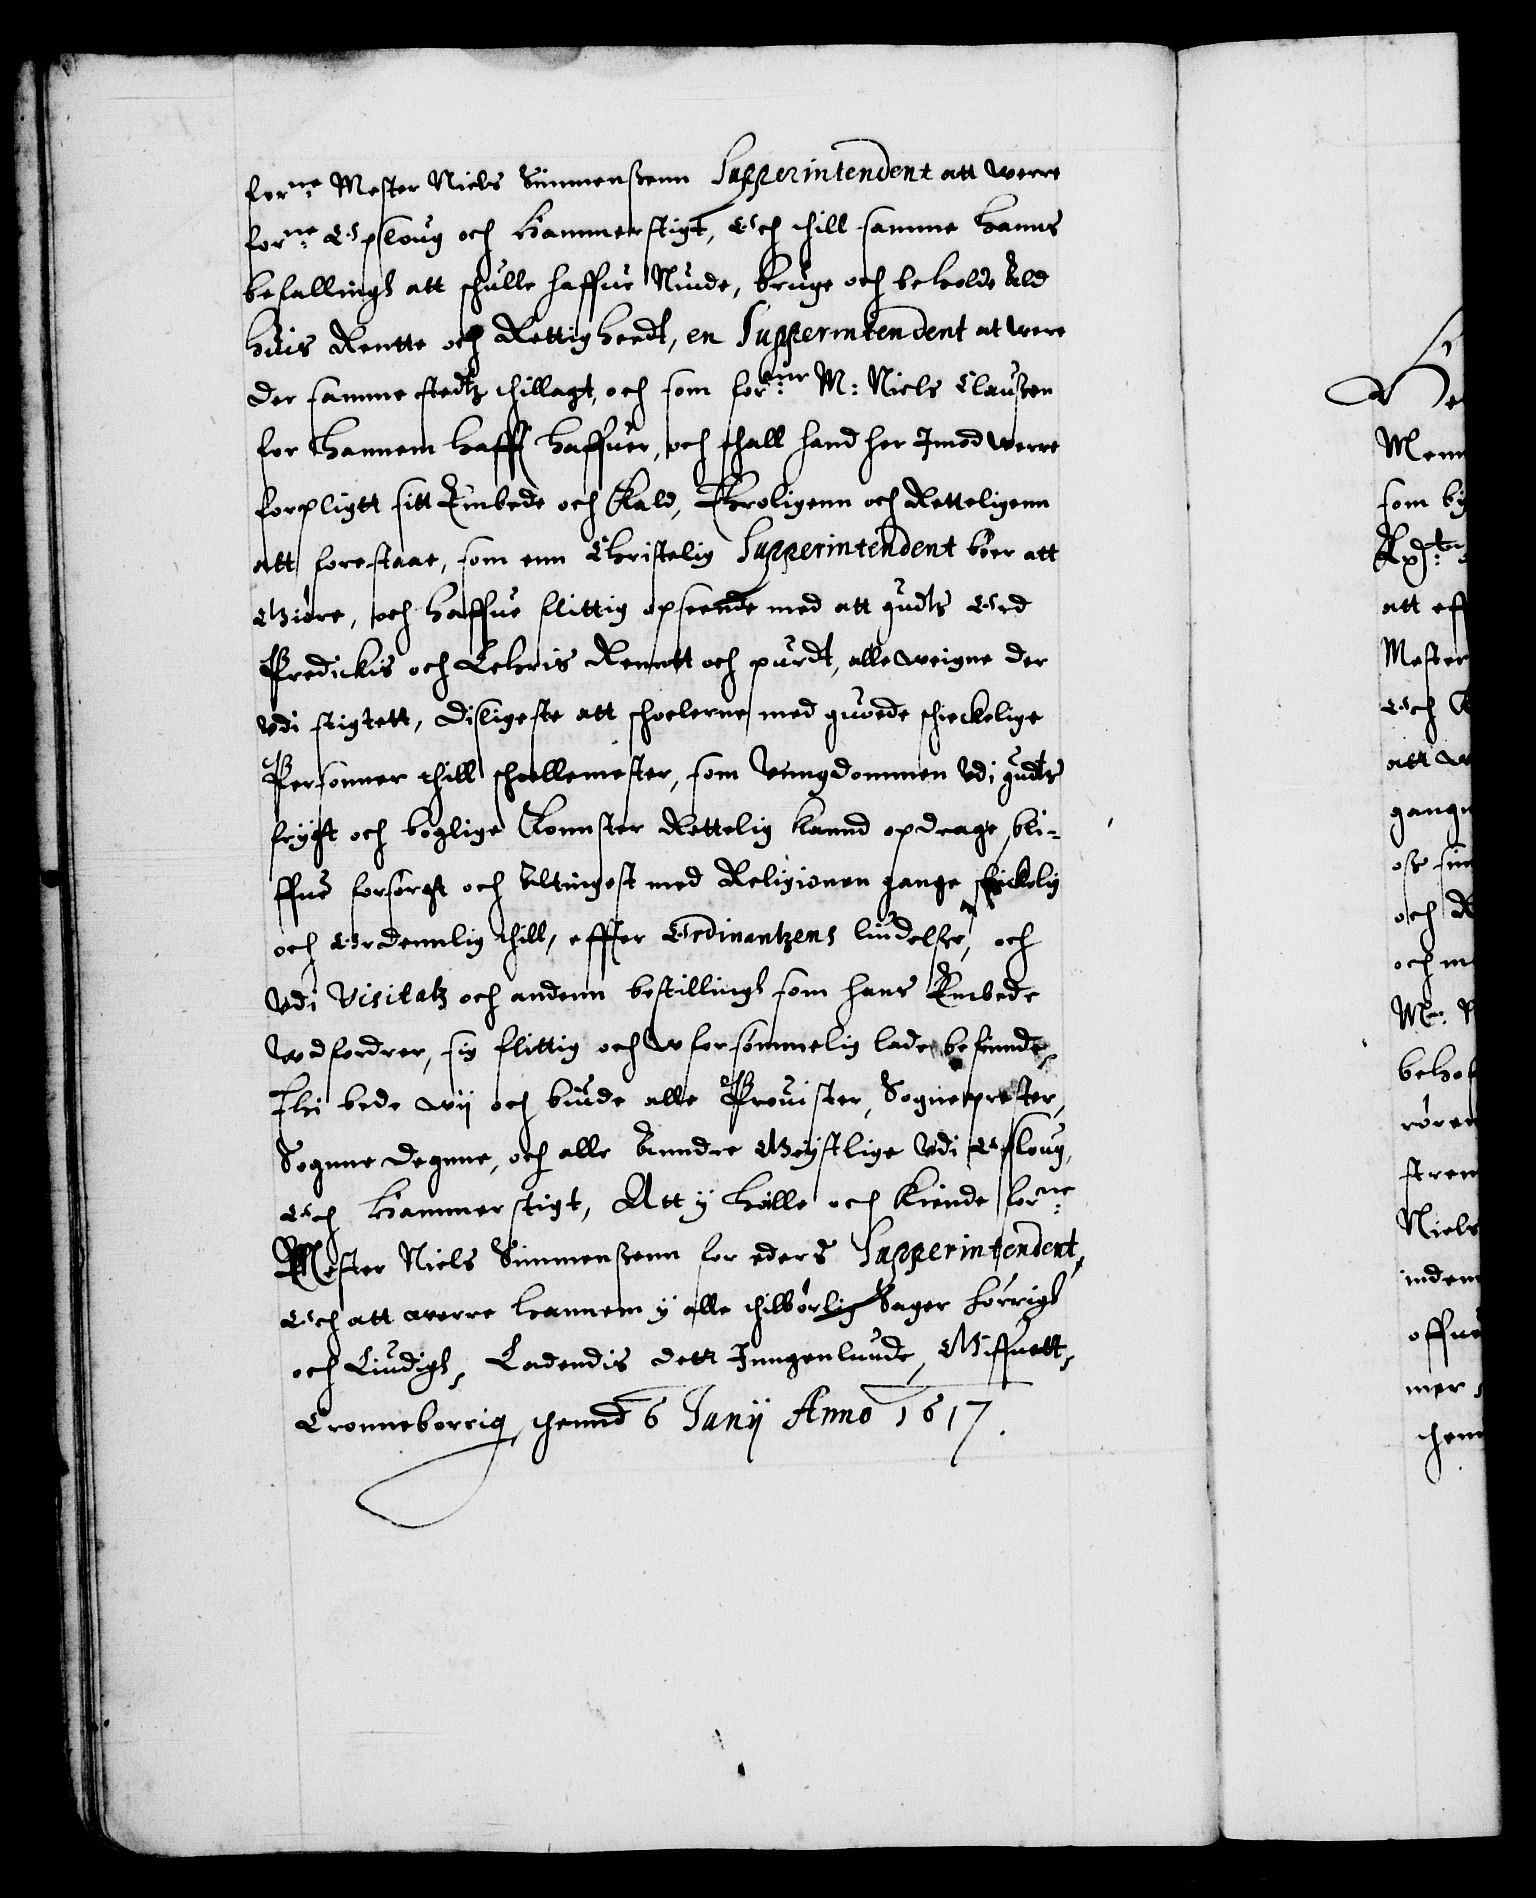 forne: Mester Niels Simmenssenn Supperintendent att werre
forne: Opsloug och Hammerstigt, Och thill samme hanns
befallingh att schulle haffue Niude, bruge och beholde Ald
huis Rentte och Rettigheedt, en Supperintendent at were
der samme stedtz thillagt, och som forne: M: Niels Claussen
for hannem hafft haffuer, och schall hand her Imod werre
forpligtt sitt Embede och Kald, Throligenn och Retteligenn
att forestaae, som enn Christelig Supperintendent bøer att
Giøre, och haffue flittig opseende med att gudts Ord
Predickis och Lehris Renntt och purdt, alle weigne der
vdi stigtett, disligeste att schoelerne med guoede schickelige
Personner thill schollemester, som Vngdommen vdi gudts
frygt och boglige Konnster Rettelig kannd opdrage, bli-
ffue forsørgt och Altingest med Religionen gange schickelig
och Ordennlig thill, effter Ordinantzens liudelsse, och
vdi Visitatz och andenn bestillingh som hans Embede
wdfordrer, sig flittig och wforsømmelig lade befinde,
Thi bede wij och biude alle Prouister, Sogneprester,
Sognne degnne, och alle Anndre Geystlige vdi Opsloug,
Och Hammerstigt, Att y holle och kiende forne:
Mester Niels Simmenssenn for eders Supperintendent,
Och att werre hannem y alle thilbørlig Sager hørrigh
och Liudigh, Ladendis dett Inngenlunde, Giffuett,
Cronneborrig, thennd 6 Junij Anno 1617.
Mem
som by
att eff
Mester
Och
att w
gangn
och
och m
behol
røren
strem
Niels
inden
offue
mer
thenn